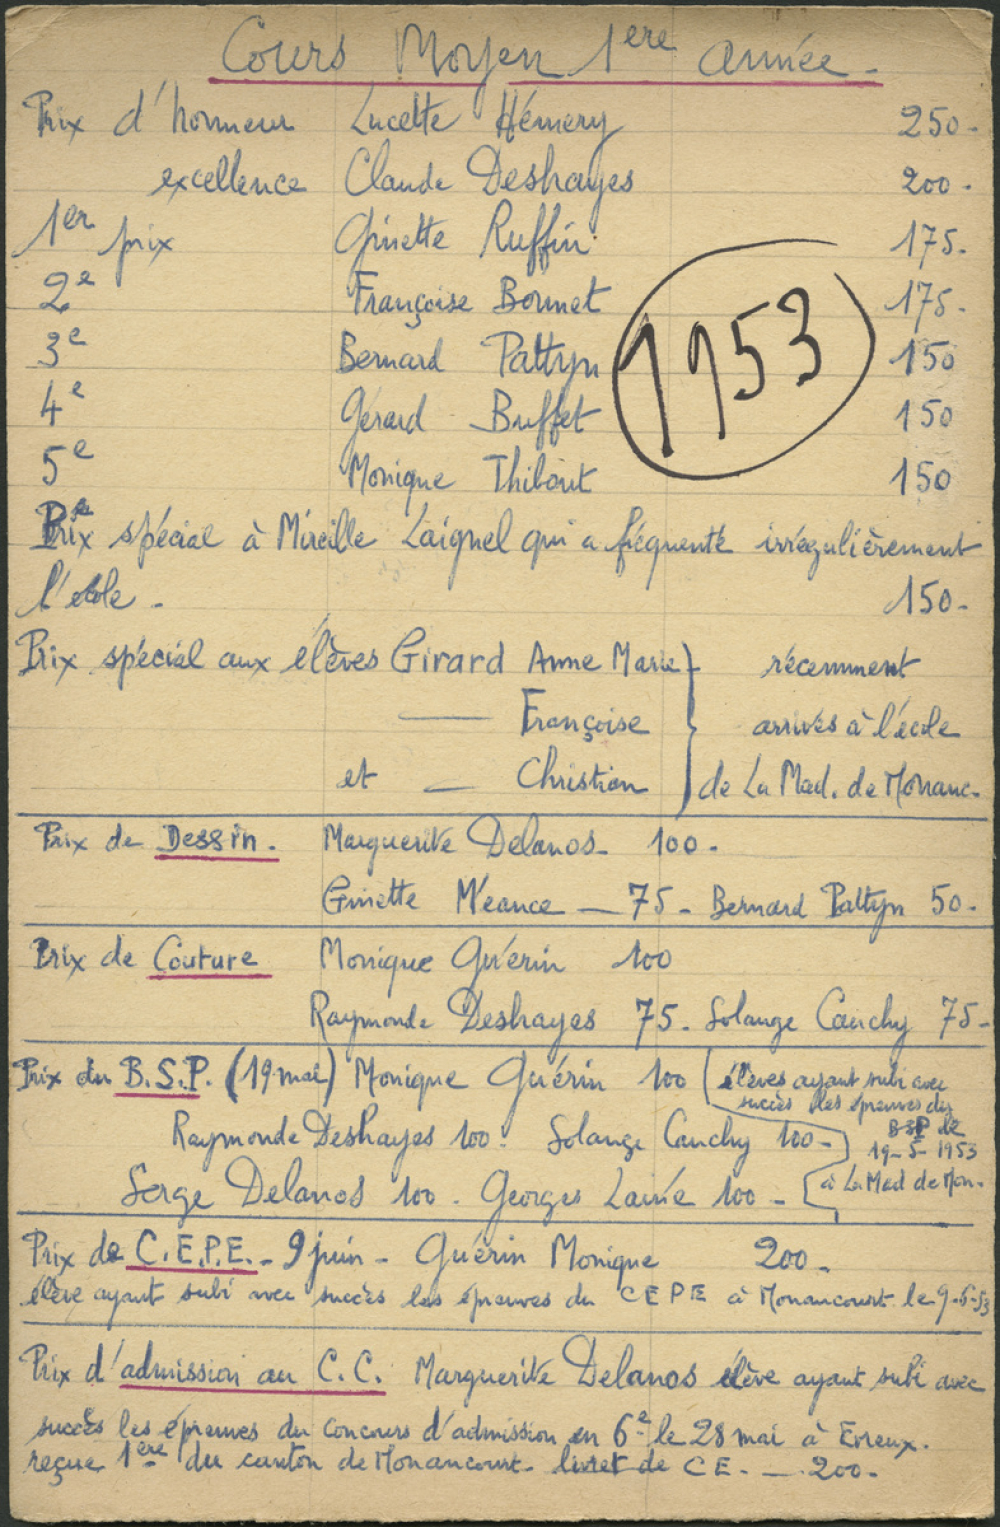 Cours Moyen 1ère année -
Prix d'honneur Lucette Hémery 250 -
excellence Claude Deshayes 200 -
1er prix Ginette Ruffin 175 -
2e Françoise Bonnet 175 -
3e Bernard Pattyn 150
4e Gérard Buffet 150
5e Monique Thibout 150
1953
Prix spécial à Mireille Laignel qui a fréquenté irrégulièrement
l'école - 150 -
Prix spécial aux élèves Girard Anne Marie } récemment
— Françoise } arrivés à l'école
et — Christian } de La Mad. de Nonanc.
Prix de Dessin - Marguerite Delanos - 100 -
Ginette Méance — 75 - Bernard Pattyn 50 -
Prix de Couture Monique Guérin 100
Raymonde Deshayes 75 - Solange Cauchy 75 -
Prix du B.S.P. (19 mai) Monique Guérin 100 ( élèves ayant subi avec
succès les épreuves du
Raymonde Deshayes 100 - Solange Cauchy 100 - BSP de
19-5-1953
Serge Delanos 100 - Georges Lainé 100 - à La Mad de Non.
Prix de C.E.P.E. - 9 juin - Guérin Monique 200 -
élève ayant subi avec succès les épreuves du CEPE à Nonancourt le 9-6-53
Prix d'admission au C.C. Marguerite Delanos élève ayant subi avec
succès les épreuves du concours d'admission en 6e le 28 mai à Evreux.
reçue 1ère du canton de Nonancourt - livret de CE. — 200 -